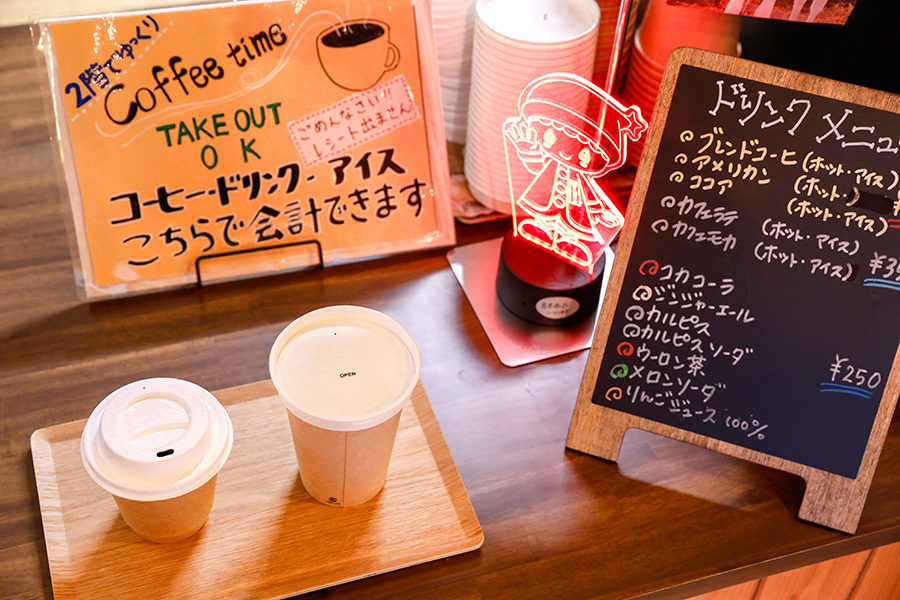 2階でゆっくり
Coffee time
TAKE OUT
OK
ごめんなさい!!
レシート出ません
コーヒー・ドリンク・アイス
こちらで会計できます
OPEN
ドリンクメニュ
ブレンドコーヒ(ホット・アイス)
アメリカン(ホット)
ココア(ホット・アイス)
カフェラテ(ホット・アイス)
カフェモカ(ホット・アイス)
コカコーラ
ジンジャーエール
カルピス
カルピスソーダ
ウーロン茶
メロンソーダ
¥250
りんごジュース100%